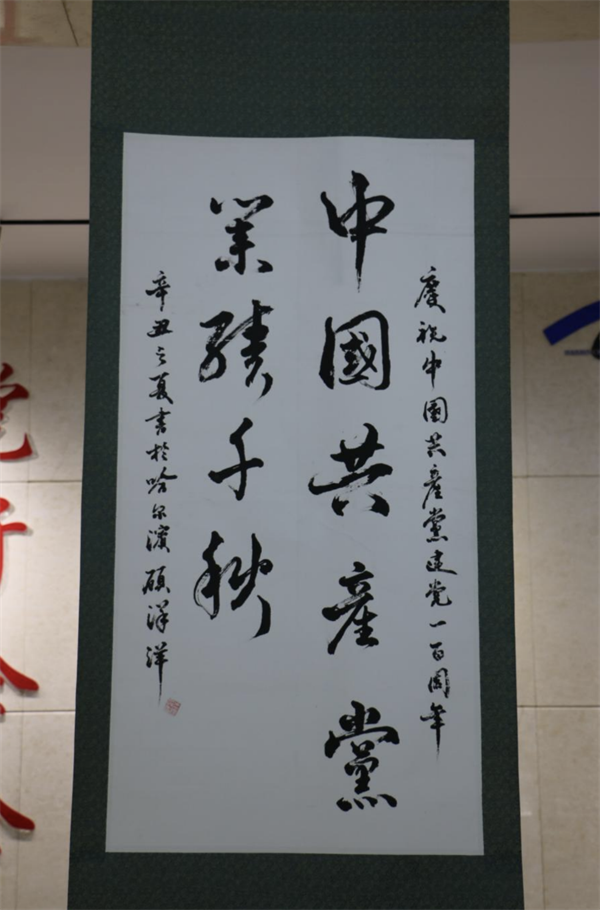 慶祝中國共產黨建党一百周年
中國共產黨
業績千秋
辛丑之夏書於哈尔濱顾洋洋
党